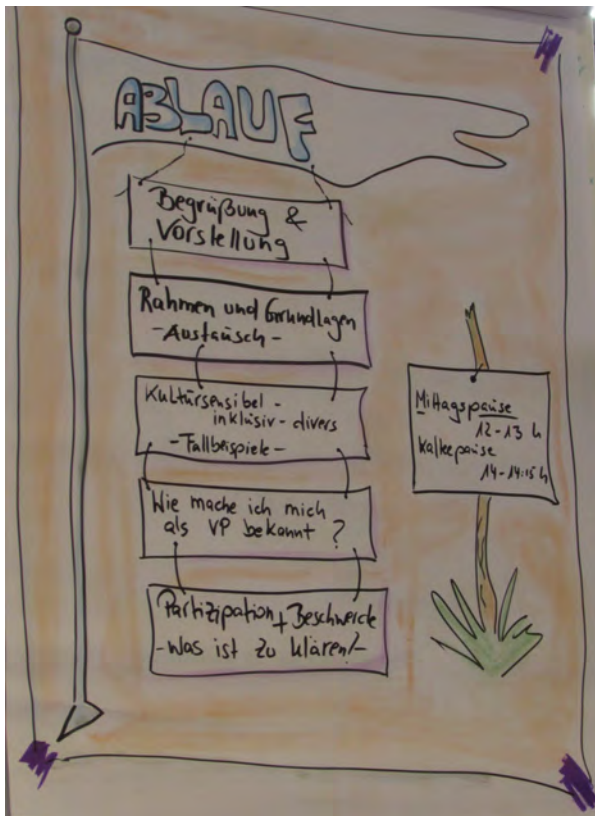 ABLAUF
Begrüßung &
Vorstellung
Rahmen und Grundlagen
-Austausch-
Kultursensibel -
inklusiv - divers
-Fallbeispiele-
Wie mache ich mich
als VP bekannt?
Partizipation + Beschwerde
-Was ist zu klären!-
Mittagspause
12-13 h
Kaffeepause
14-14:15 h